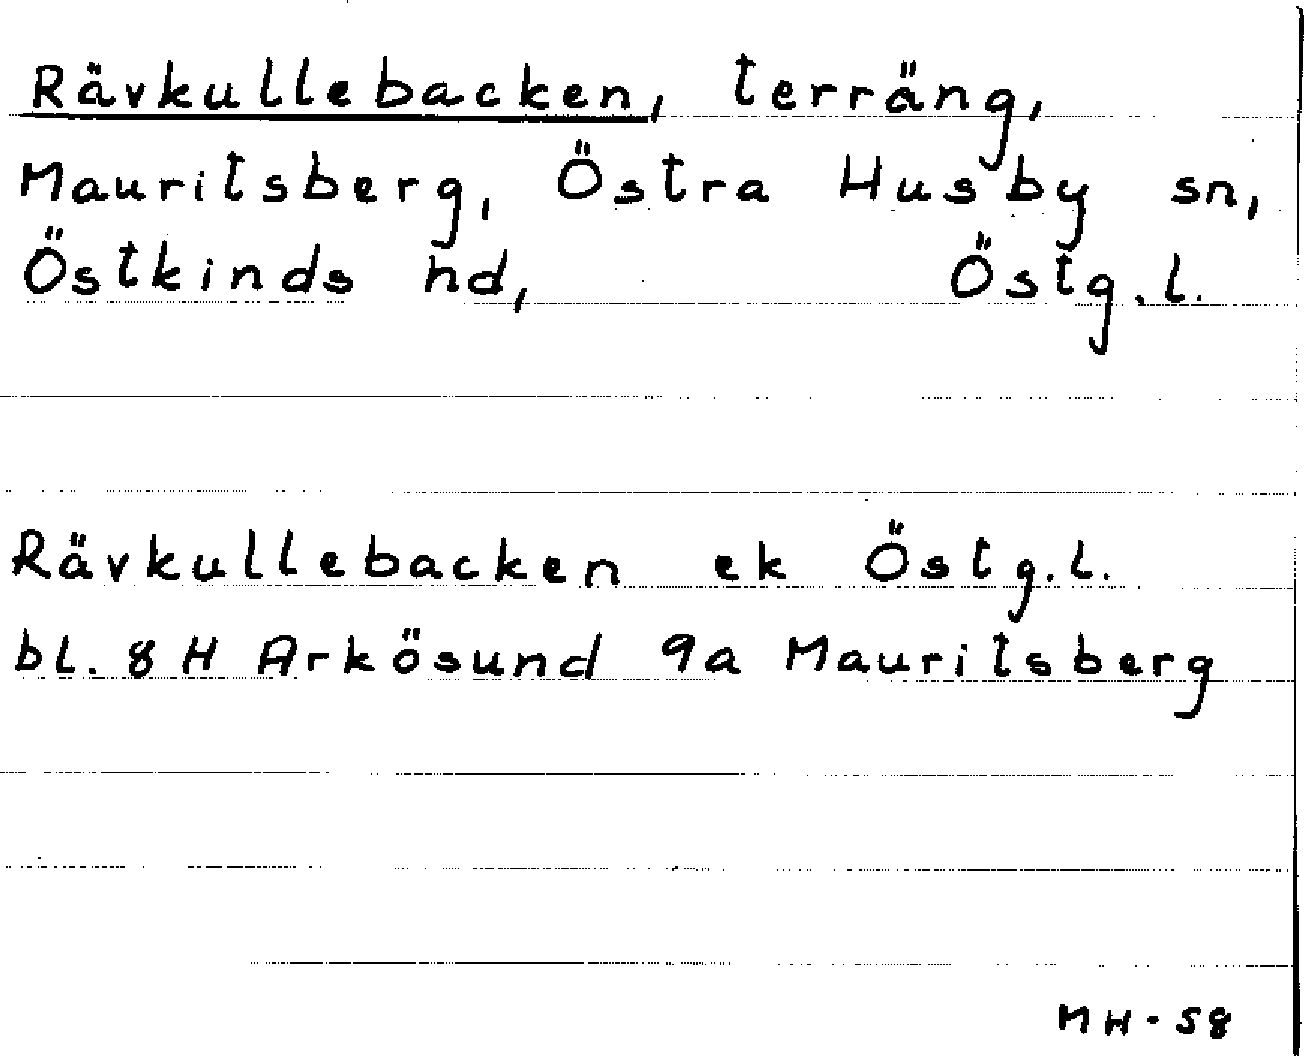 Rävkullebacken, terräng,
Mauritsberg, Östra Husby sn,
Östkinds hd, Östg.l.
Rävkullebacken ek Östg.l.
bl. 8 H Arkösund 9a Mauritsberg
MH-58